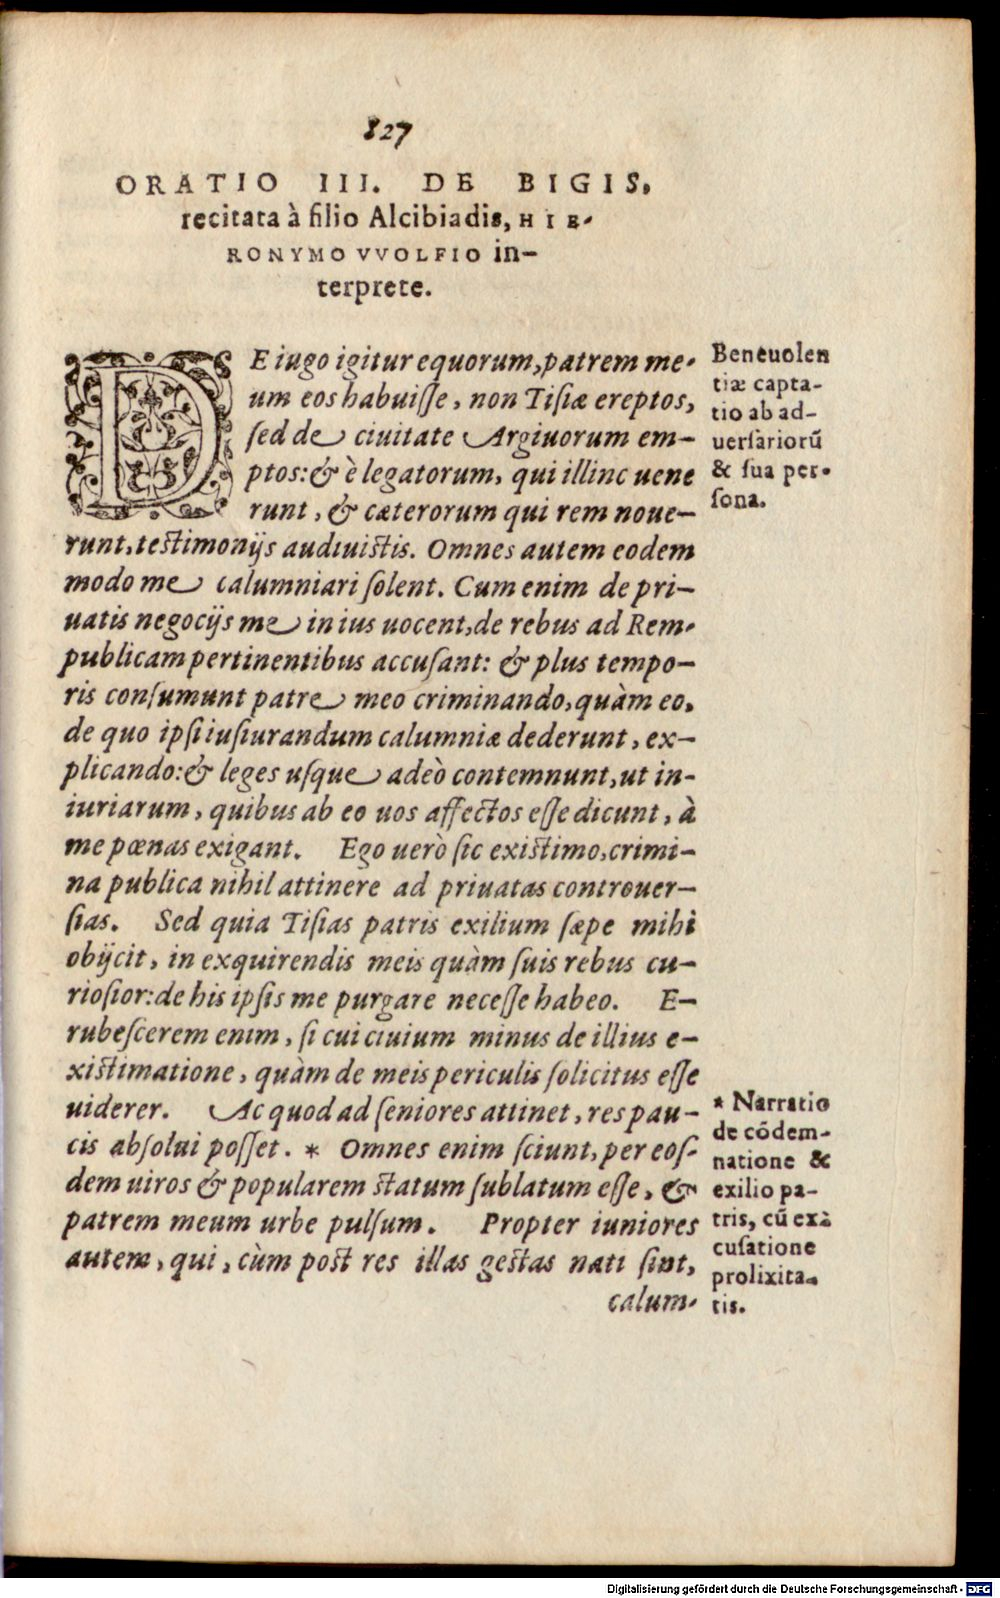 827
ORATIO III. DE BIGIS,
recitata à filio Alcibiadis, HIE-
RONYMO VVOLFIO in-
terprete.
DE iugo igitur equorum, patrem me-
um eos habuiſſe, non Tiſiæ ereptos,
ſed de ciuitate Argiuorum em-
ptos: & è legatorum, qui illinc uene
runt, & cæterorum qui rem noue-
runt, teſtimonijs audiuiſtis. Omnes autem eodem
modo me calumniari ſolent. Cum enim de pri-
uatis negocijs me in ius uocent, de rebus ad Rem-
publicam pertinentibus accuſant: & plus tempo-
ris conſumunt patre meo criminando, quàm eo,
de quo ipſi iuſiurandum calumniæ dederunt, ex-
plicando: & leges uſque adeò contemnunt, ut in-
iuriarum, quibus ab eo uos affectos eſſe dicunt, à
me pœnas exigant. Ego uerò ſic exiſtimo, crimi-
na publica nihil attinere ad priuatas controuer-
ſias. Sed quia Tiſias patris exilium ſæpe mihi
obijcit, in exquirendis meis quàm ſuis rebus cu-
rioſior: de his ipſis me purgare neceſſe habeo. E-
rubeſcerem enim, ſi cui ciuium minus de illius e-
xiſtimatione, quàm de meis periculis ſolicitus eſſe
uiderer. Ac quod ad ſeniores attinet, res pau-
cis abſolui poſſet. * Omnes enim ſciunt, per eoſ-
dem uiros & popularem ſtatum ſublatum eſſe, &
patrem meum urbe pulſum. Propter iuniores
autem, qui, cùm poſt res illas geſtas nati ſint,
calum-
Beneuolen
tiæ capta-
tio ab ad-
uerſariorũ
& ſua per-
ſona.
* Narratio
de cõdem-
natione &
exilio pa-
tris, cũ ex
cuſatione
prolixita-
tis.
Digitalisierung gefördert durch die Deutsche Forschungsgemeinschaft - DFG